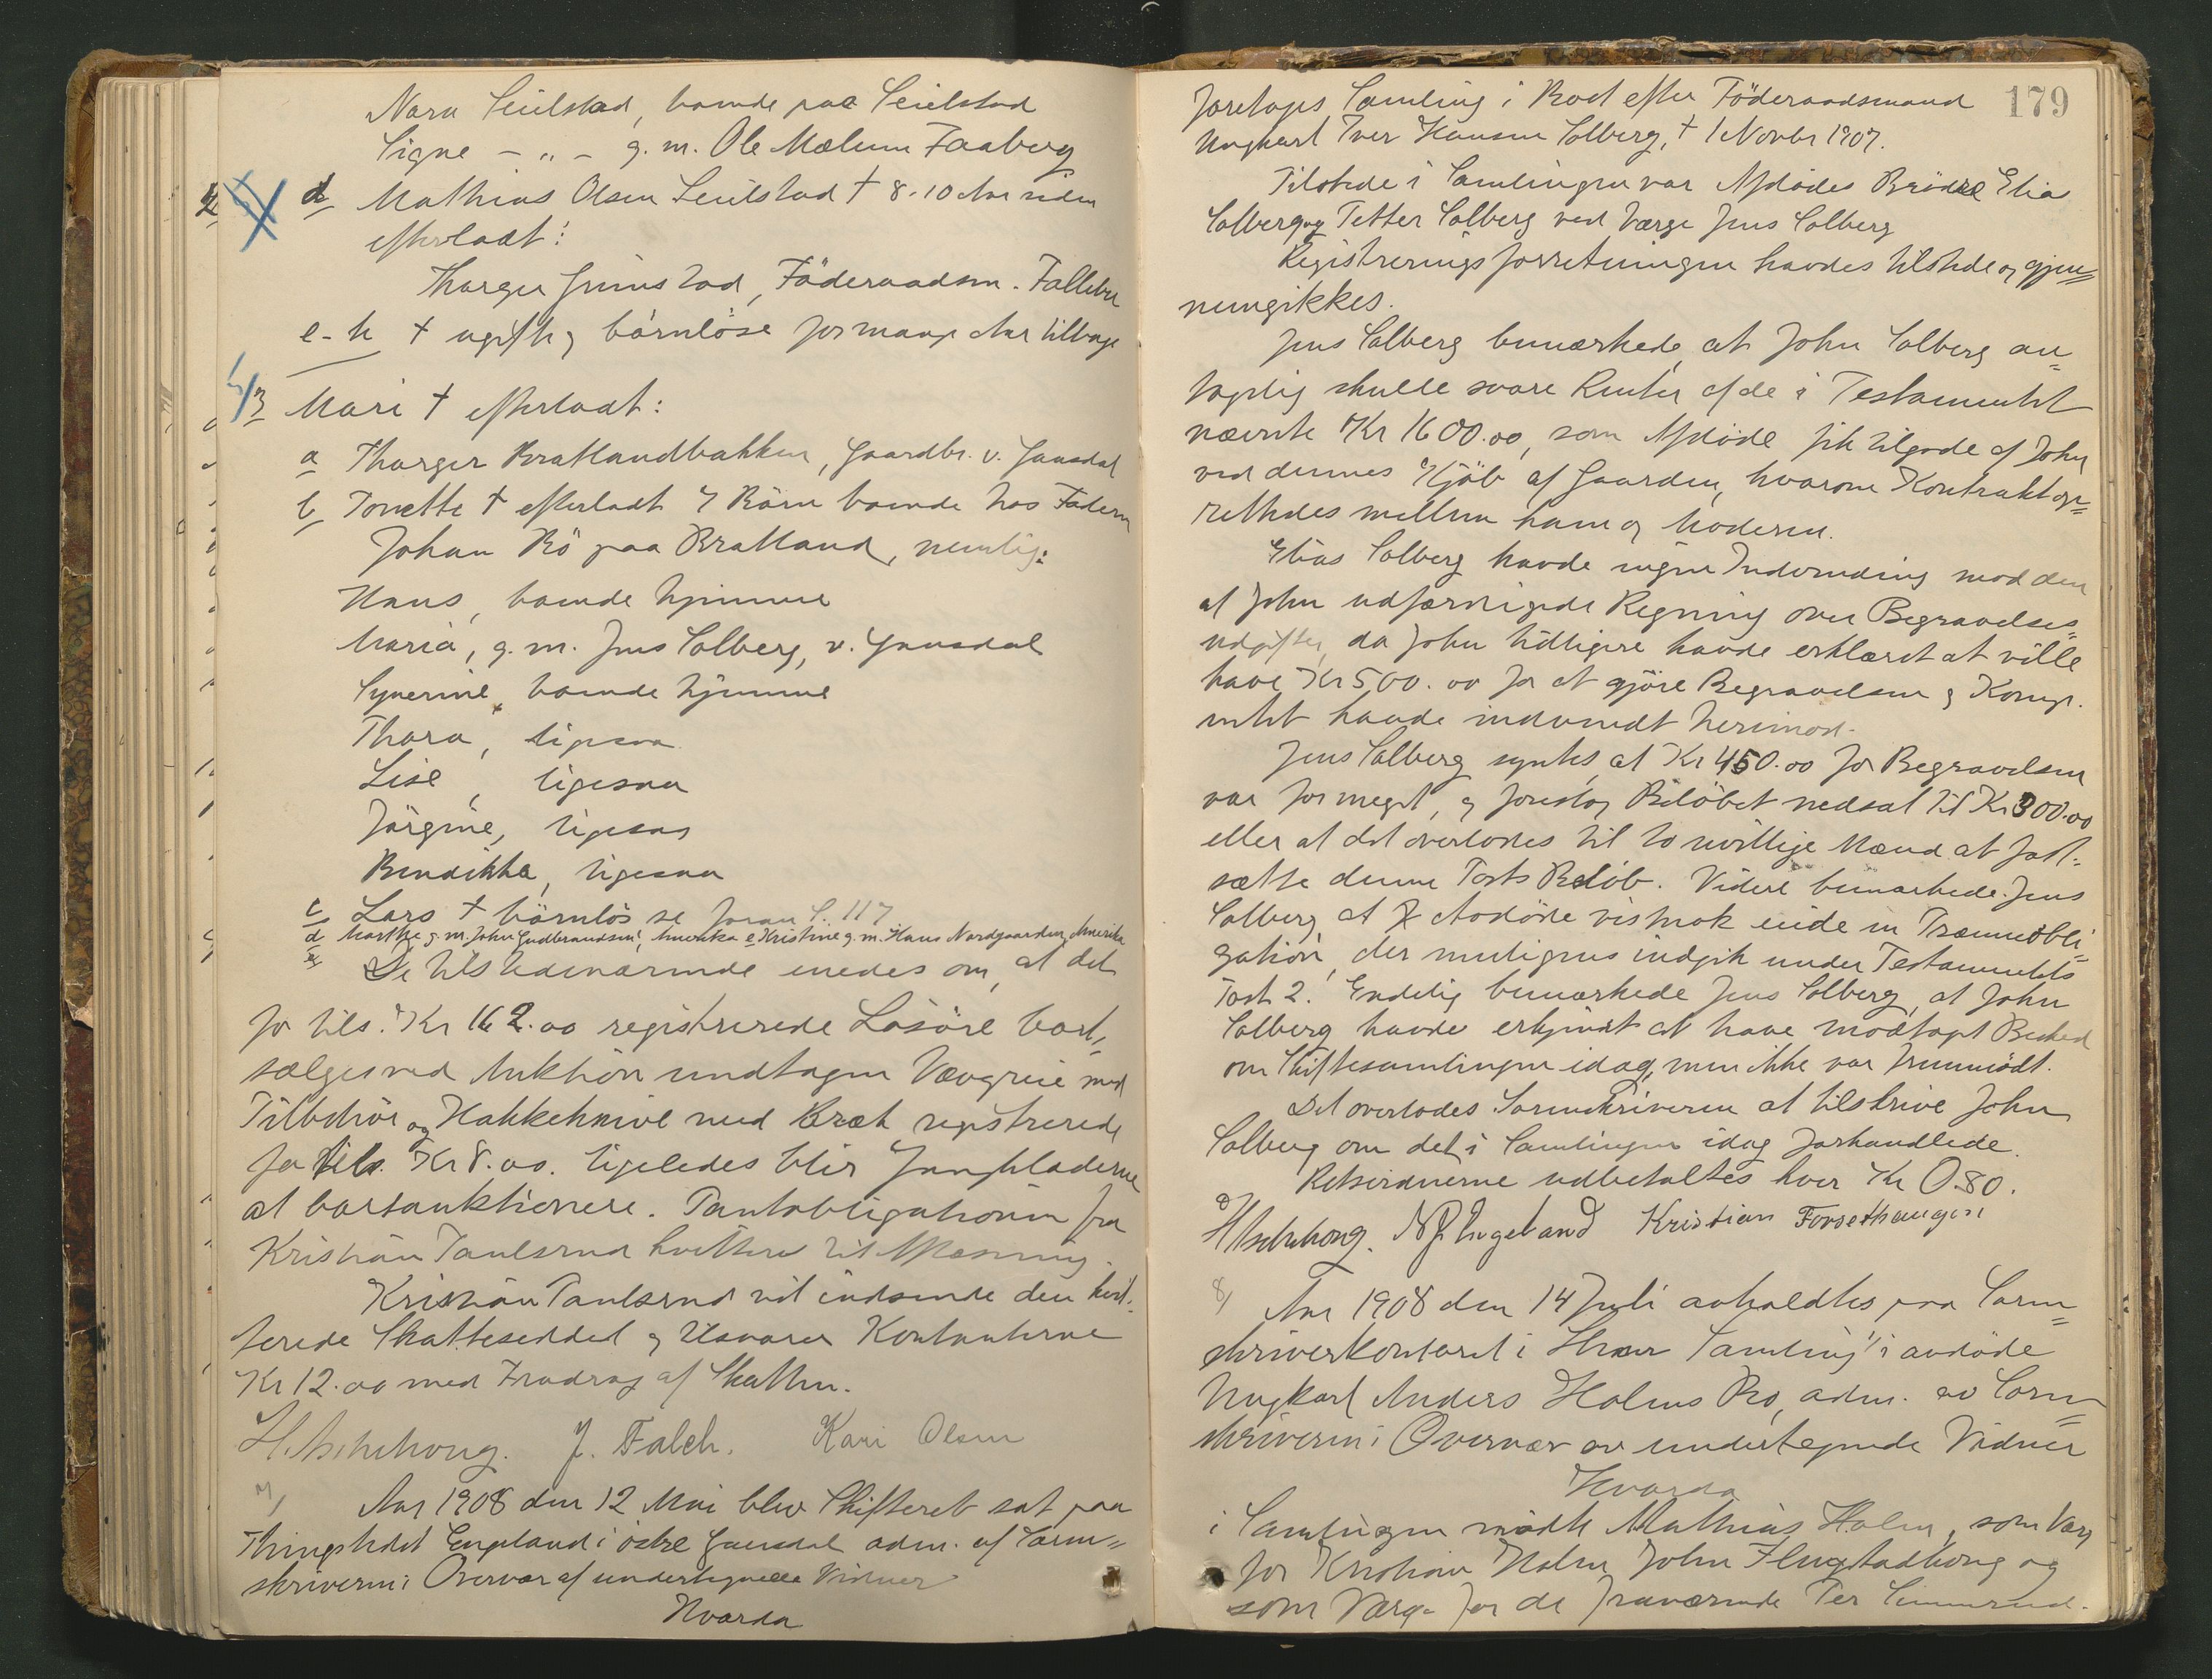 Nara Seielstad, boende paa Seielstad
Signe - " - g. m. Ole Mælum Faaberg
d Mathias Olsen Seielstad † 8-10 Aar siden
efterladt:
Thorger Grimstad, Föderaadsm. Follebu
e-h † ugifte og börnlöse for mange Aar tilbage
3 Mari † efterladt:
a Thorger Bratlandbakken, Gaardbr. v. Gausdal
b Tonette † efterladt 7 Börn boende hos Faderen
Johan Bö paa Bratland, nemlig:
Hans, boende hjemme
Maria, g. m. Jens Solberg, v. Gausdal
Synerine, boende hjemme
Thora, ligesaa
Lise, ligesaa
Jörgine, ligesaa
Bendikka, ligesaa
c Lars † börnlös se foran S. 117
d Marthe g. m. John Gudbrandsen, Amerika e Kristine g. m. Hans Nordgaarden, Amerika
De tilstedeværende enedes om, at det
for tils. Kr 162.00 registrerede Lösöre bort-
sælges ved Auktion undtagen Vævgreie med
Tilbehör og Hakkeknive med Bræt registrerede
for tils. Kr 8.00. Ligeledes blir
at bortauktionere. Pantobligationen fra
Kristian Paulsrud kvitteres til Aflæsning.
Kristian Paulsrud vil indsende den kvit-
terede Skatteseddel og tilsvarer Kontanterne
Kr 12.00 med Fradrag af Skatten.
H. Aschehoug. J. Falch. Kari Olsen
7/ Aar 1908 den 12 Mai blev Skifteret sat paa
Thingstedet Engeland i östre Gausdal adm. af Soren-
skriveren i Overvær af undertegnede Vidner
Hvorda
179
foretoges Samling i Boet efter Föderaadsmand
Ungkarl Iver Hansen Solberg, † 1 Novbr 1907.
Tilstede i Samlingen var Afdödes Brödre Elias
Solberg og Petter Solberg ved Værge Jens Solberg
Registreringsforretningen havdes tilstede og gjen-
nemgikkes.
Jens Solberg bemærkede, at John Solberg an-
tagelig skulle svare Renter af de i Testamentet
nævnte Kr 1600.00, som Afdöde fik tilgode af John
ved dennes Kjöb af Gaarden, hvorom Kontrakt op-
rettedes mellem ham og Moderen.
Elias Solberg havde ingen Indvending mod den
af John udfærdigede Regning over Begravelses-
udgifter, da John tidligere havde erklæret at ville
have Kr 500.00 for at gjöre Begravelsen og Komp.
intet havde indvendt herimod.
Jens Solberg syntes, at Kr 450.00 for Begravelsen
var for meget, og foreslog Belöbet nedsat til Kr 300.00
eller at det overlodes til to uvillige Mænd at fast-
sætte denne Posts Belöb. Videre bemærkede Jens
Solberg, at Avdöde vistnok eiede en Præmieobli-
gation, der muligens indgik under Testamentets
Post 2. Endelig bemærkede Jens Solberg, at John
Solberg havde erkjendt at have modtaget Besked
om Skiftesamlingen idag, men ikke var fremmödt.
Det overlodes Sorenskriveren at tilskrive John
Solberg om det i Samlingen idag forhandlede.
Retsvidnerne udbetaltes hver Kr 0.80.
H Aschehoug. N P Engeland Kristian Forsethaugen
8/ Aar 1908 den 14 Juli avholdtes paa Soren-
skriverkontoret i Samling i avdöde
Ungkarl Anders Holms Bo, adm. av Soren-
skriveren i Overvær av undertegnede Vidner
Hvorda
i Samlingen mödte Mathias Holm, som Værge
for Kristian Holm, John Flugstadhoug og
som Værge for de fraværende Per